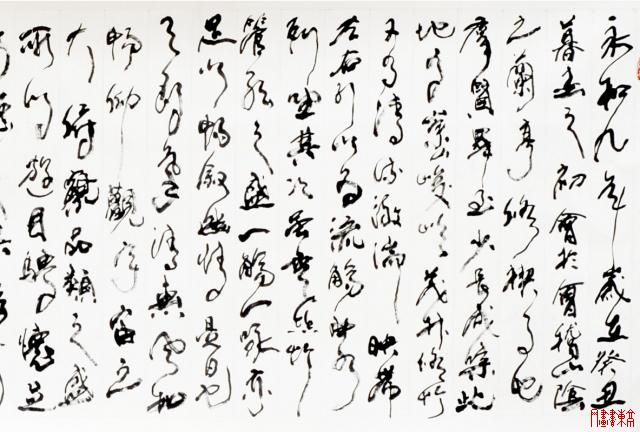 永和九年歲在癸丑
暮春之初會於會稽山陰
之蘭亭脩禊事也
群賢畢至少長咸集此
地有崇山峻嶺茂林脩竹
又有清流激湍映帶
左右引以為流觴曲水
列坐其次雖無絲竹
管弦之盛一觴一詠亦
足以暢敘幽情是日也
天朗氣清惠風和
暢仰觀宇宙之
大俯察品類之盛
所以遊目騁懷足